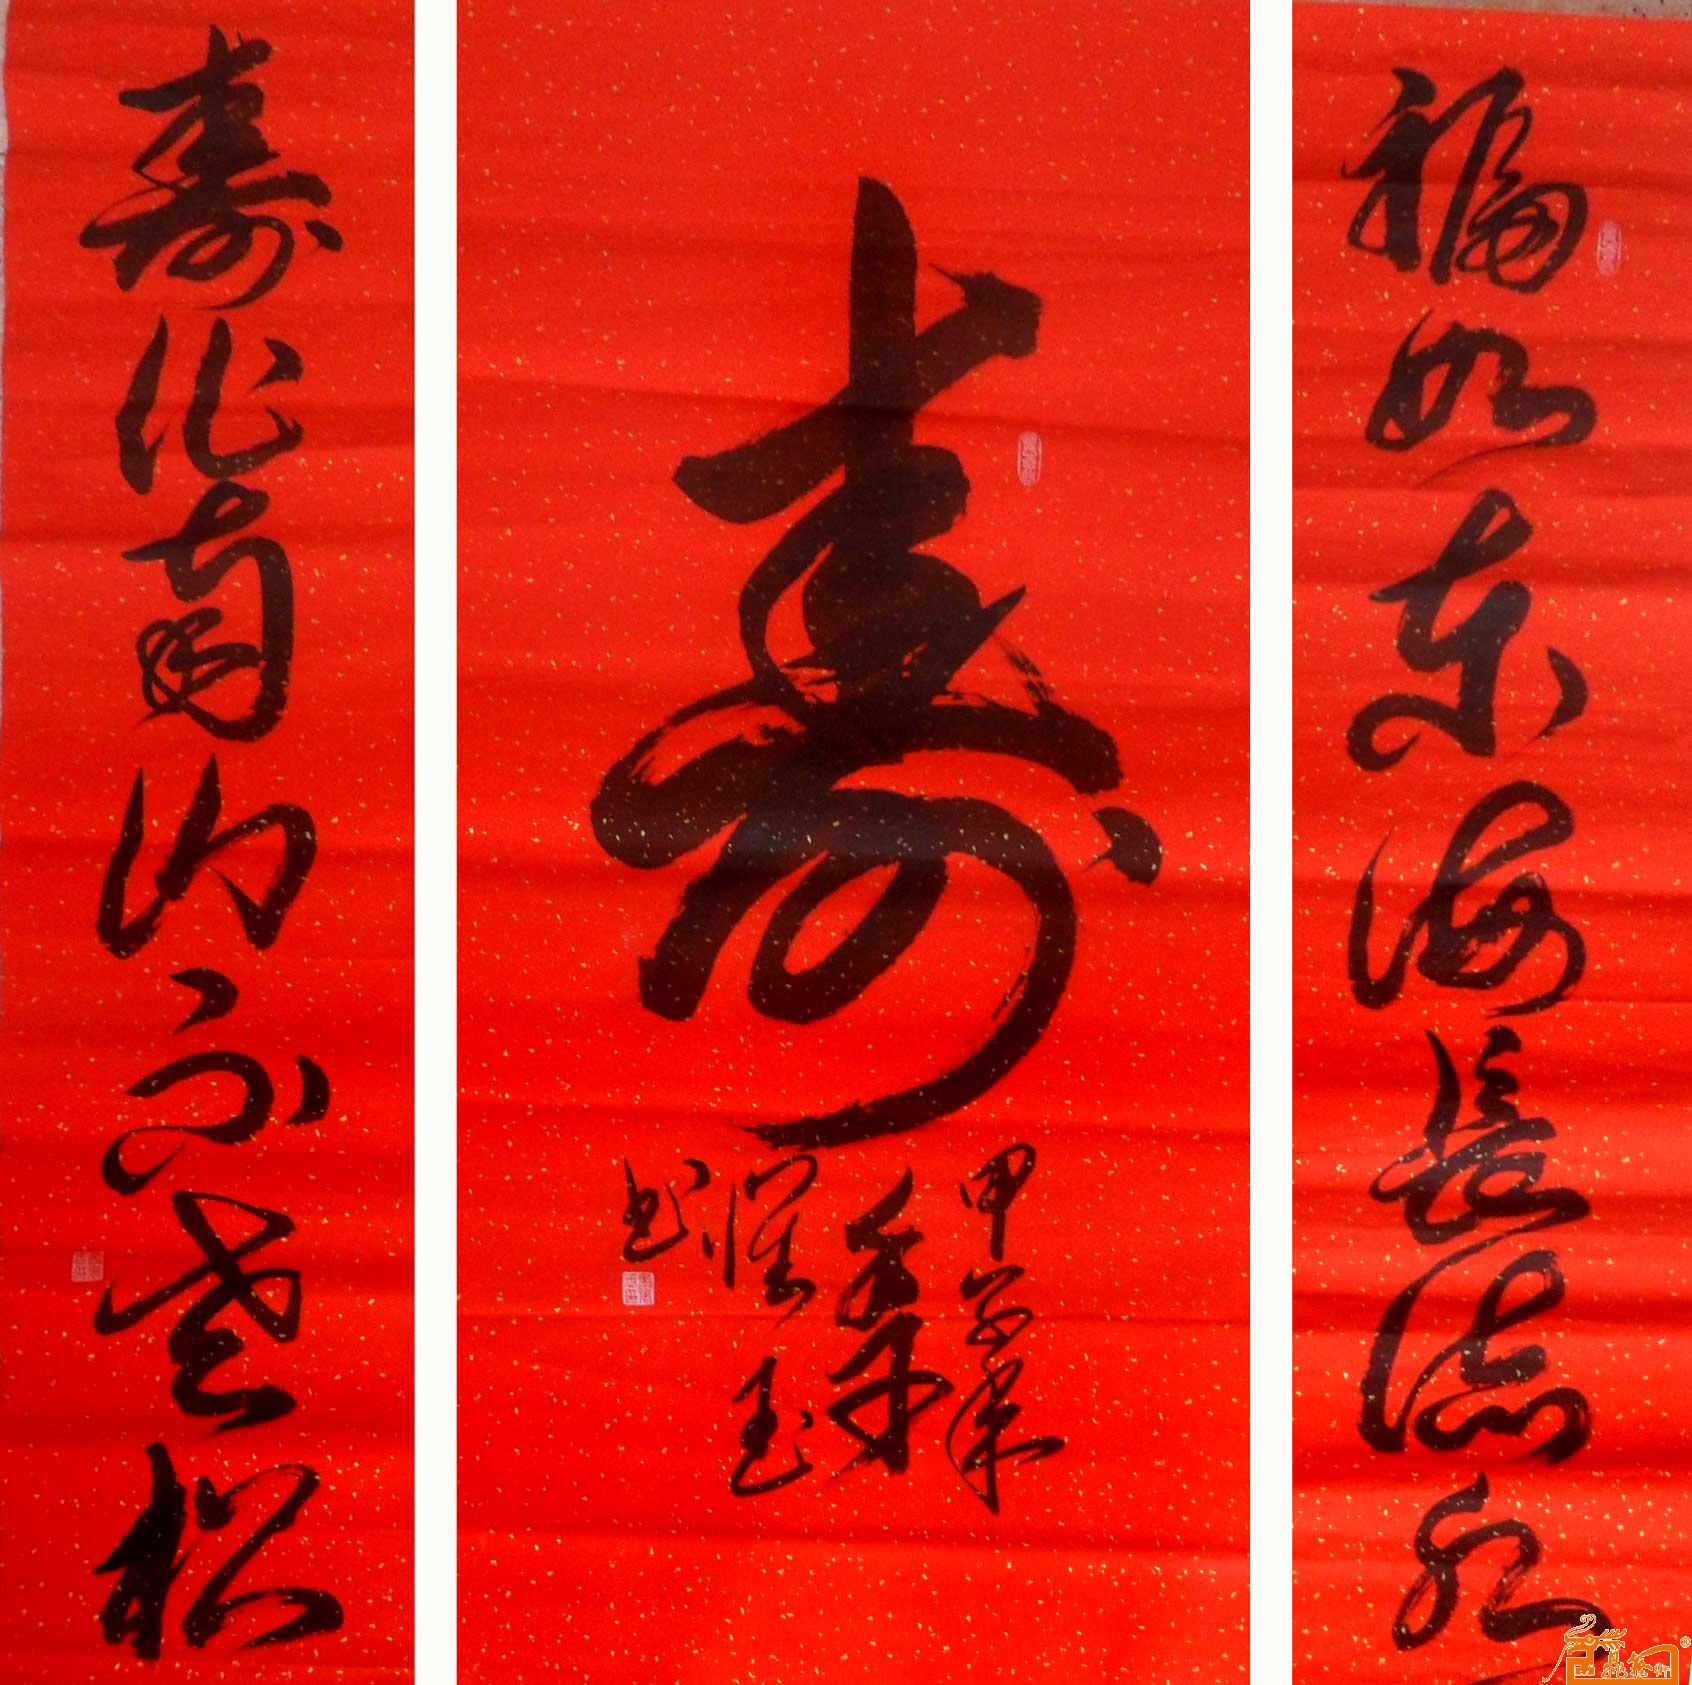 福如东海长流水
寿
甲午年
秀峰
怀玉
书
寿比南山不老松